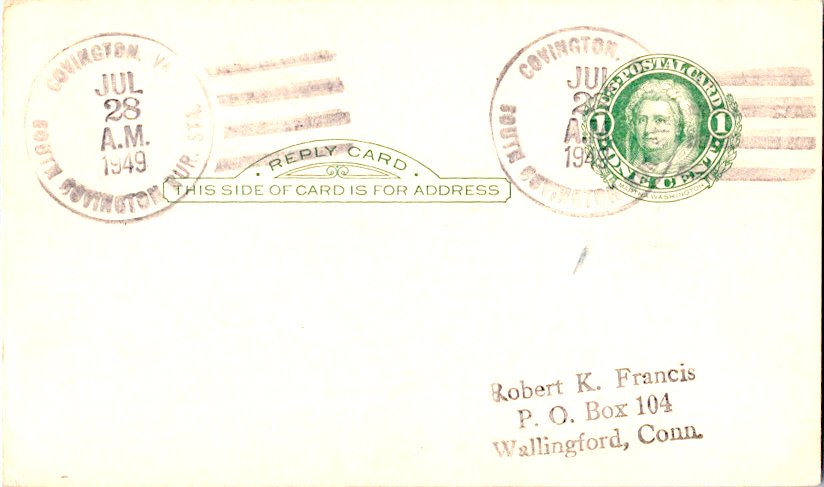 COVINGTON, VA.
JUL
28
A.M.
1949
SOUTH COVINGTON RUR. STA.
REPLY CARD
THIS SIDE OF CARD IS FOR ADDRESS
COVINGTON,
JUL
A.M.
1949
SOUTH COVINGTON
U.S. POSTAL CARD
1 1
ONE CENT
MARTHA WASHINGTON
Robert K. Francis
P. O. Box 104
Wallingford, Conn.